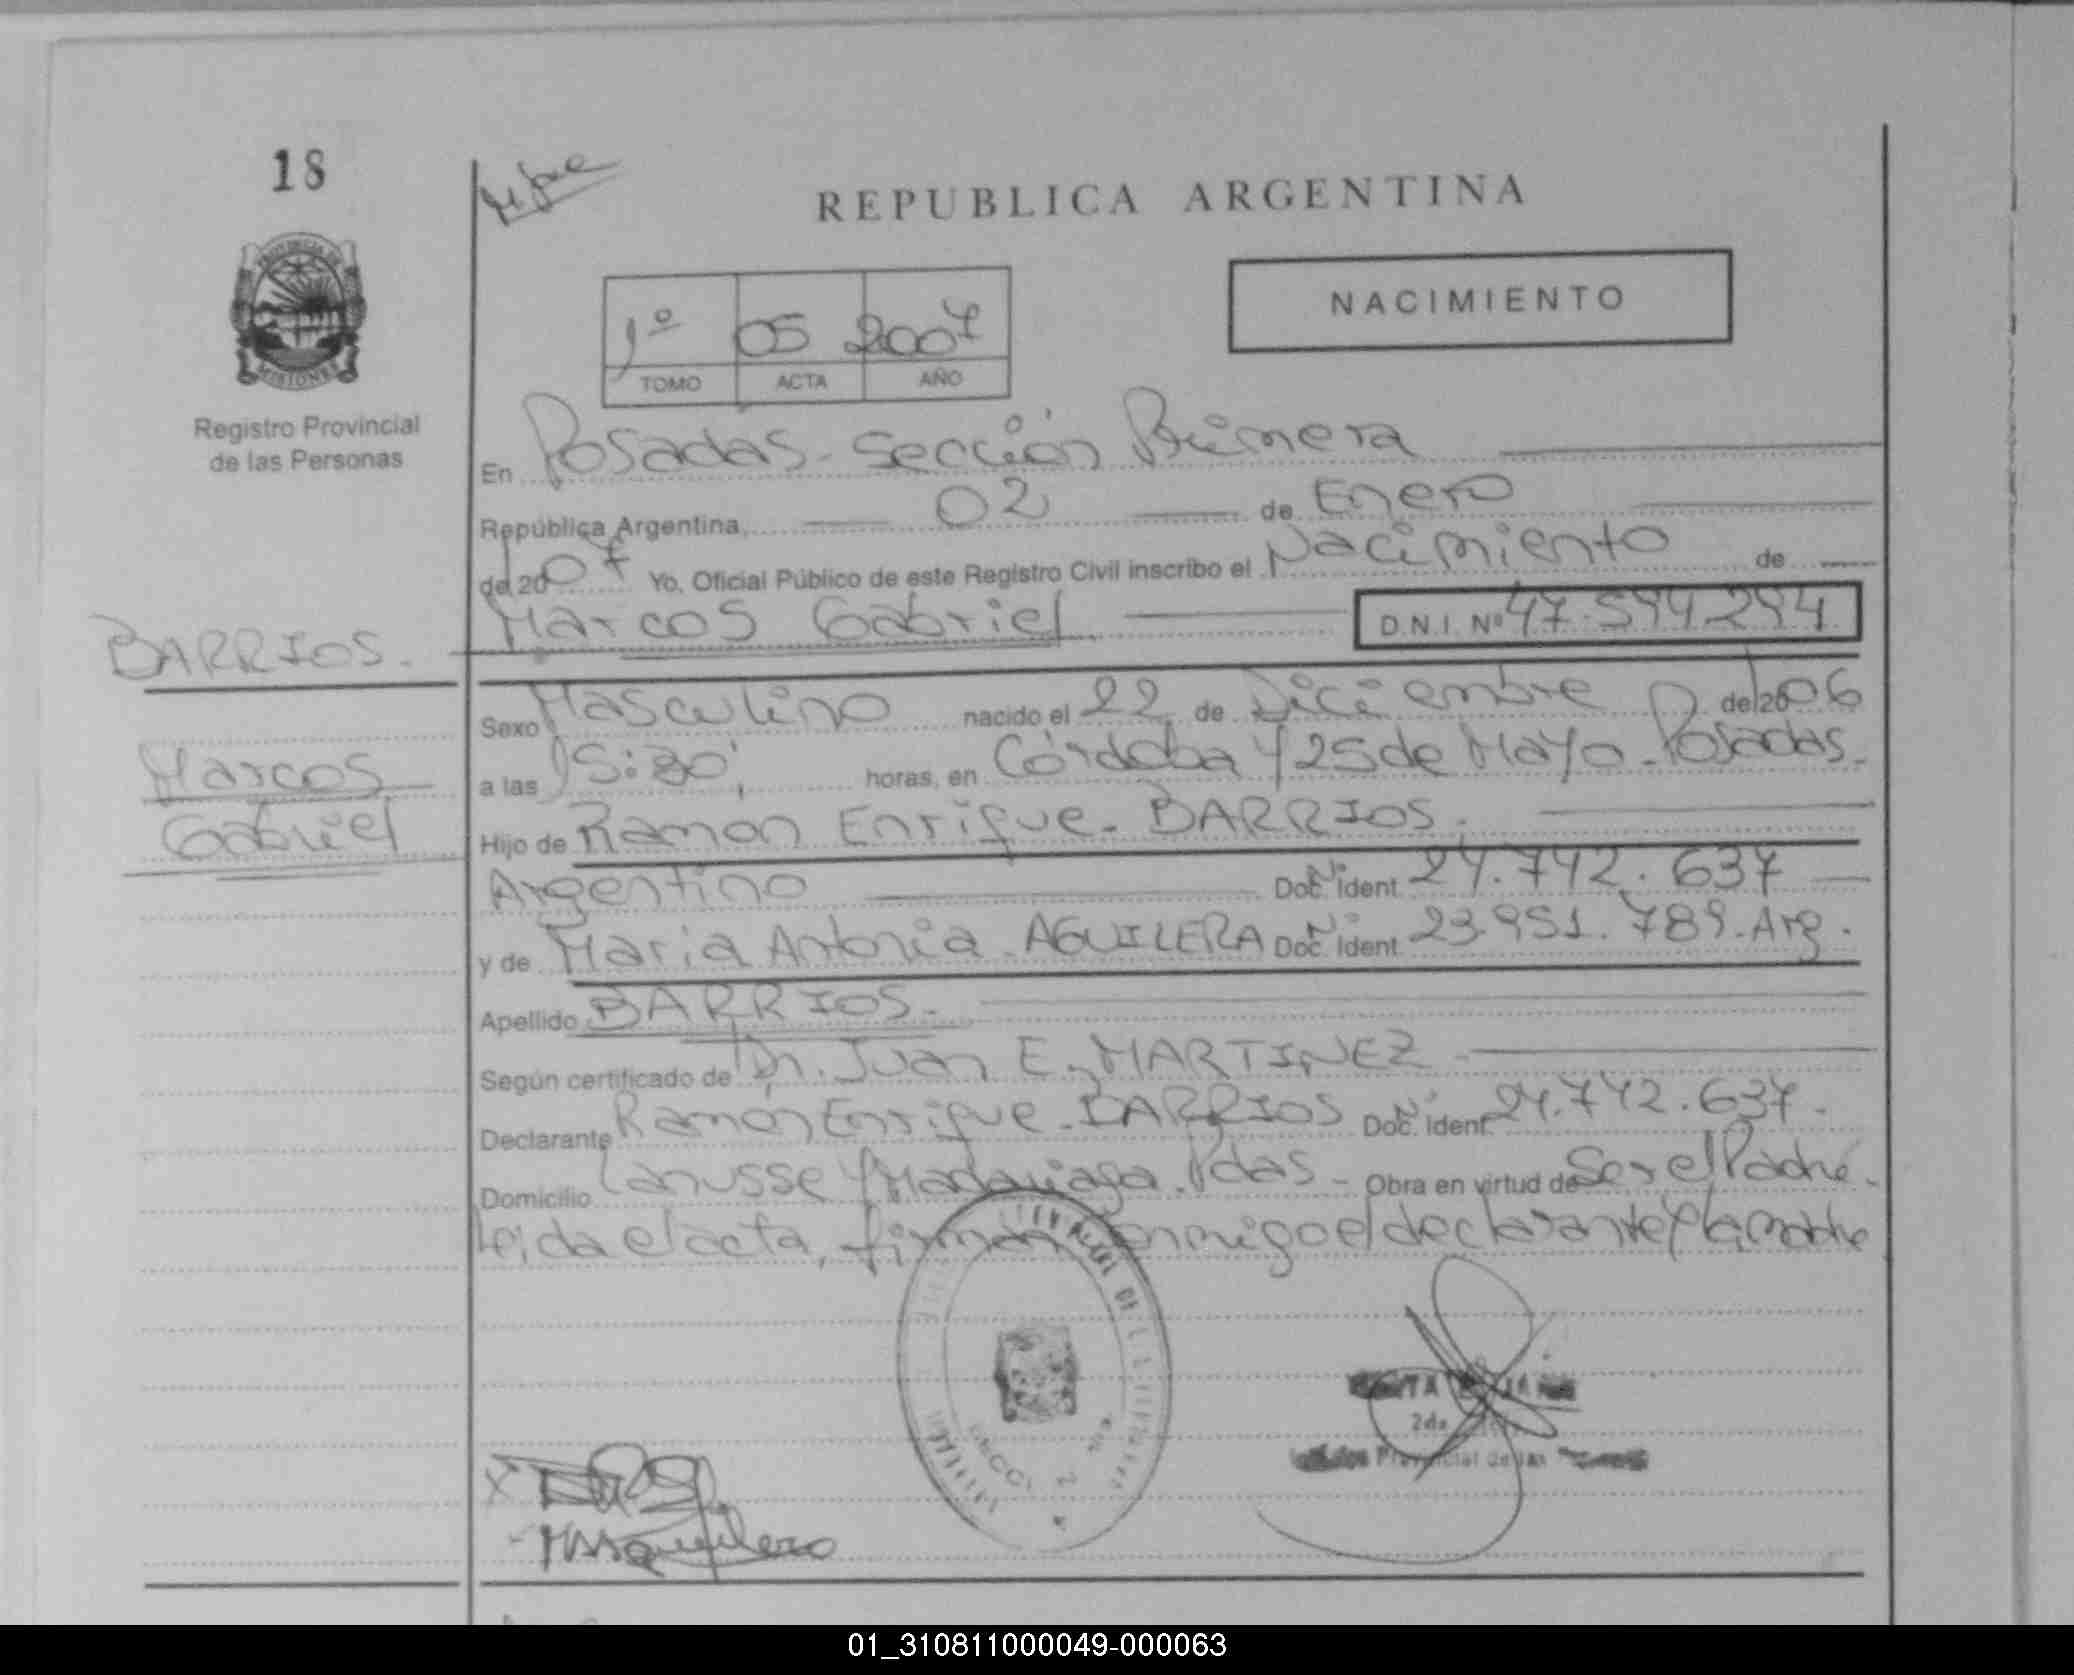 18
REPUBLICA ARGENTINA
PROVINCIA DE
MISIONES
Registro Provincial
de las Personas
1º 05 2007
TOMO ACTA AÑO
NACIMIENTO
En Posadas - Sección Primera
República Argentina, 02 de Enero
del 2007 Yo, Oficial Público de este Registro Civil inscribo el Nacimiento de
Marcos Gabriel D.N.I. Nº 47.594.294
BARRIOS.
Marcos
Gabriel
Sexo Masculino nacido el 22 de Diciembre del 2006
a las 15:30 horas, en Córdoba y 25 de Mayo - Posadas.
Hijo de Ramon Enrique - BARRIOS.
Argentino Doc. Nº Ident 24.742.637
y de Maria Antonia - AGUILERA Doc. Nº Ident 23.951.789. Arg.
Apellido BARRIOS.-
Según certificado de Dr. Juan E. MARTINEZ -
Declarante Ramón Enrique - BARRIOS Doc. Nº Ident 24.742.637.
Domicilio Lanusse y Madariaga. Pdas - Obra en virtud de Ser el Padre.
leida el acta, firman conmigo el declarante y la madre
2da
Provincial de las
01_310811000049-000063